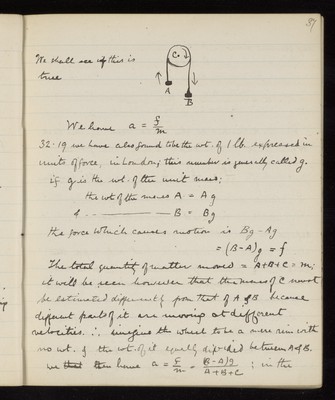 37
We shall see if this is
true
C
A
B
We have a = f/m
32.19 we have also found to be the wt. of 1 lb. expressed in
units of force, in London; this number is generally called g.
if g is the wt. of the unit mass;
the wt of the mass A = Ag
" - - - B = Bg
the force which causes motion is Bg - Ag
= (B-A)g = f
The total quantity of matter moved = A+B+C = m;
it will be seen however that the mass of C must
be estimated differently from that of A & B because
different parts of it are moving at different
velocities. ∴ imagine the wheel to be a mere rim with
no wt. & the wt. of it equally divided between A & B.
we then have a = f/m = (B-A)g/A+B+C ; in the